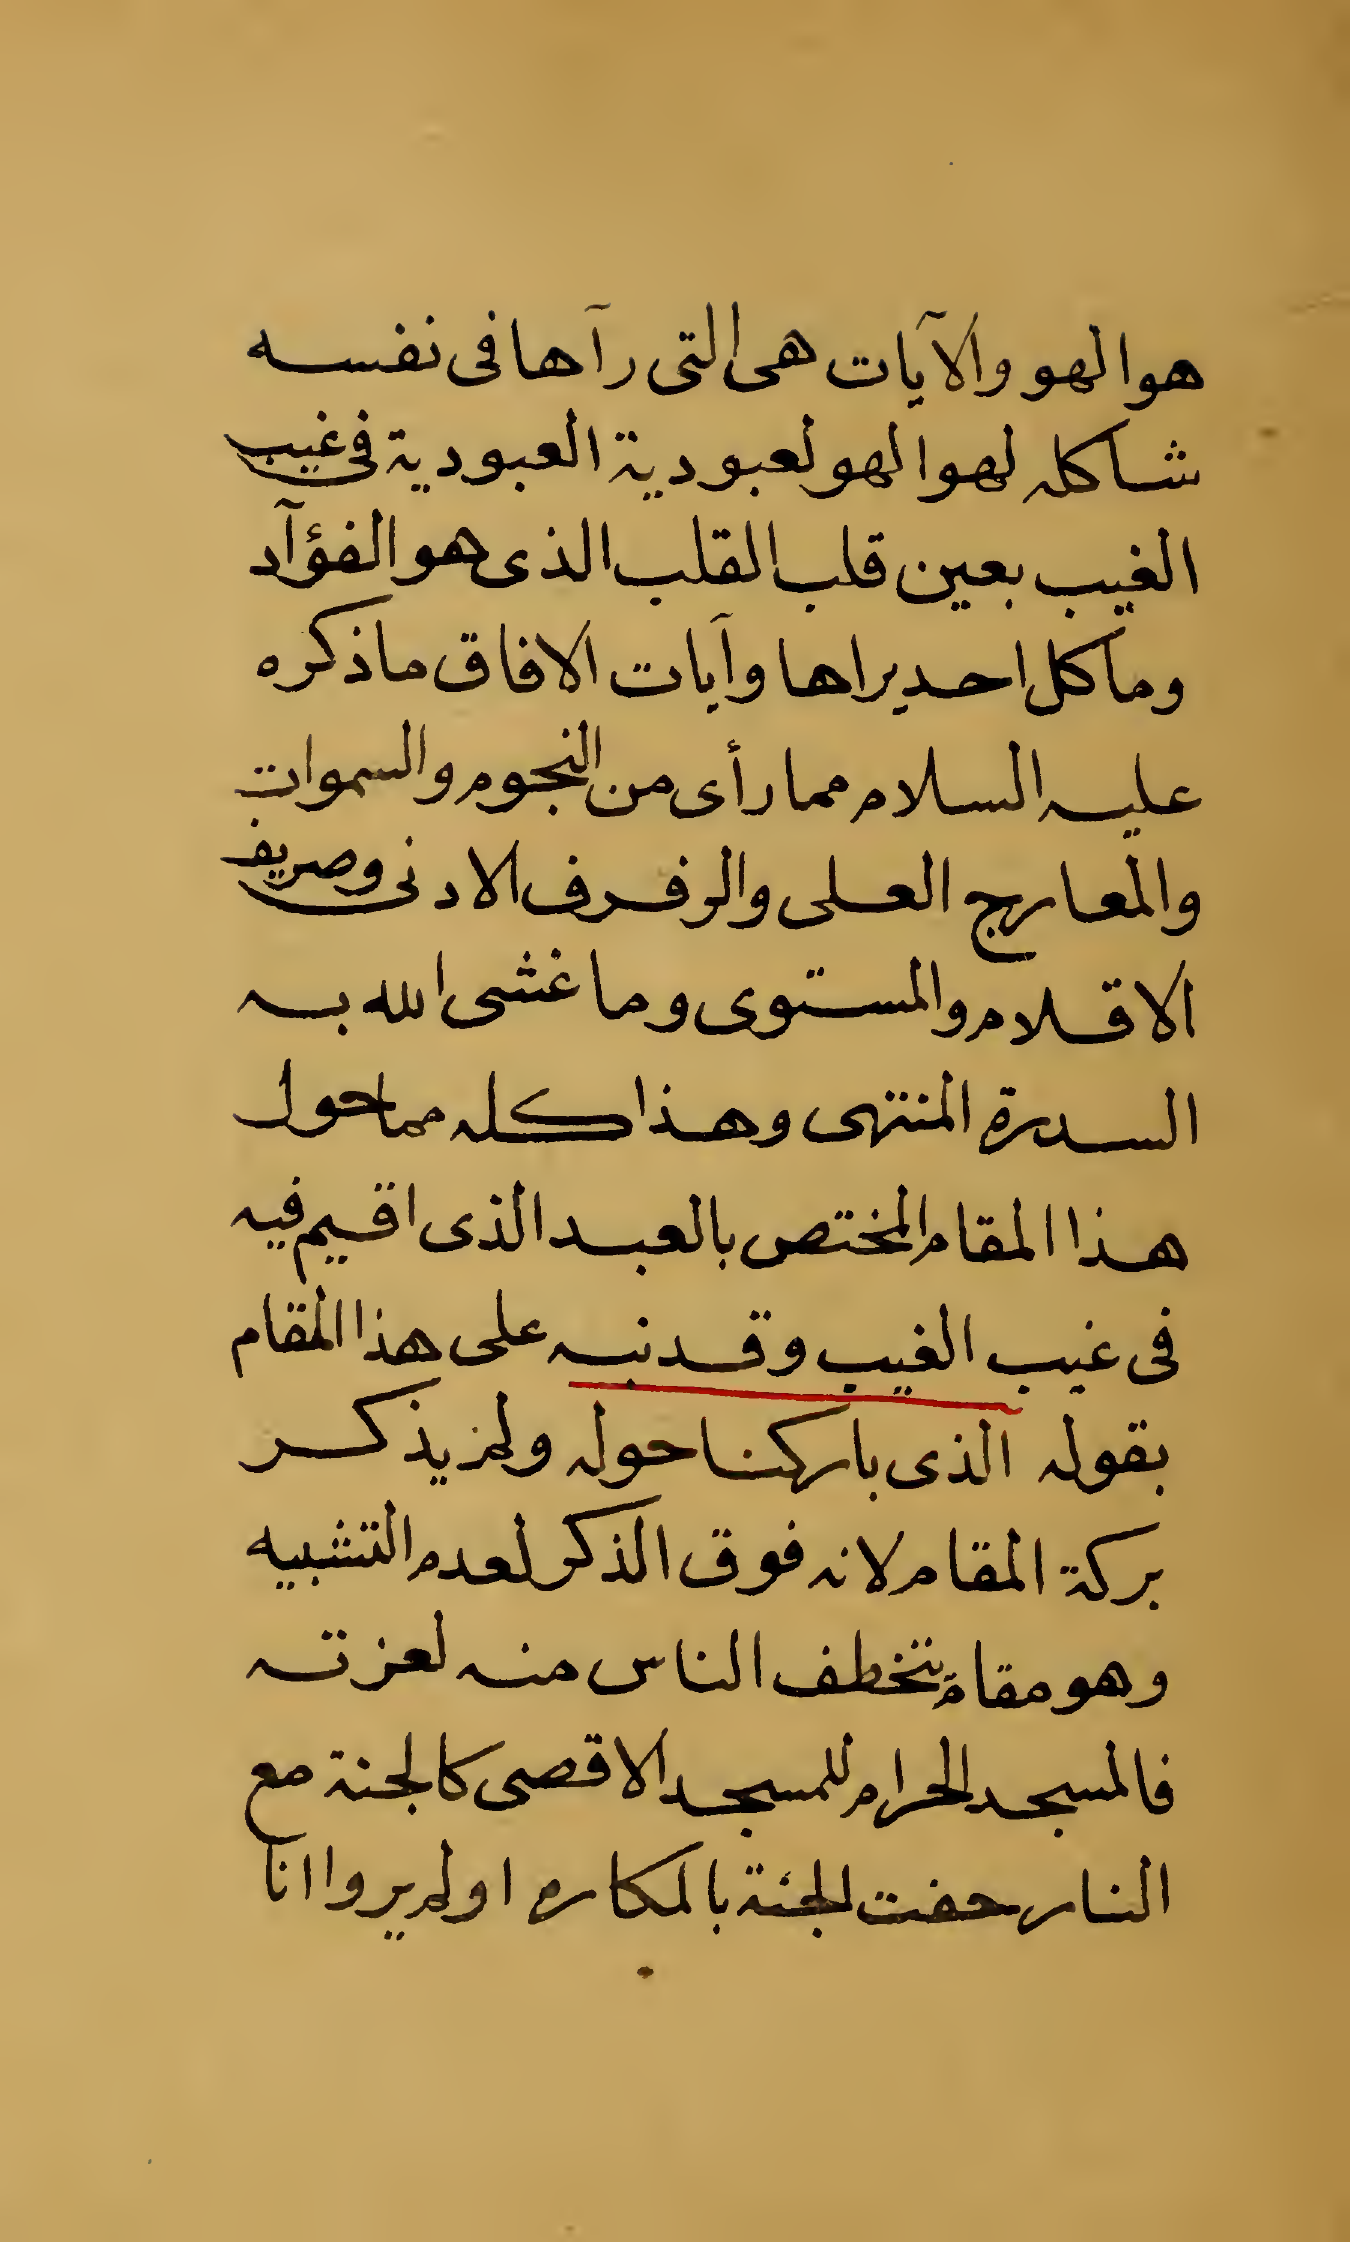 هوا لهو والآيات هى التى رآها فى نفسه
شاكله لهوا لهو لعبودية العبودية فى غيب
الغيب بعين قلب القلب الذى هو الفؤآد
وما كل احد يراها وآيات الافاق ما ذكره
عليه السلام مما رأى من النجوم والسموات
والمعارج العلى والرفرف الادنى وصريف
الاقلام والمستوى وما غشى الله به
السدرة المنتهى وهذا كله مما حول
هذا المقام المختص بالعبد الذى اقيم فيه
فى غيب الغيب وقد نبه على هذا المقام
بقوله الذى باركنا حوله ولم يذكر
بركة المقام لانه فوق الذكر لعدم التشبيه
وهو مقام يتخطف الناس منه لعزته
فالمسجد الحرام للمسجد الاقصى كالجنة مع
النار حفت الجنة بالمكاره اولم يروا انا